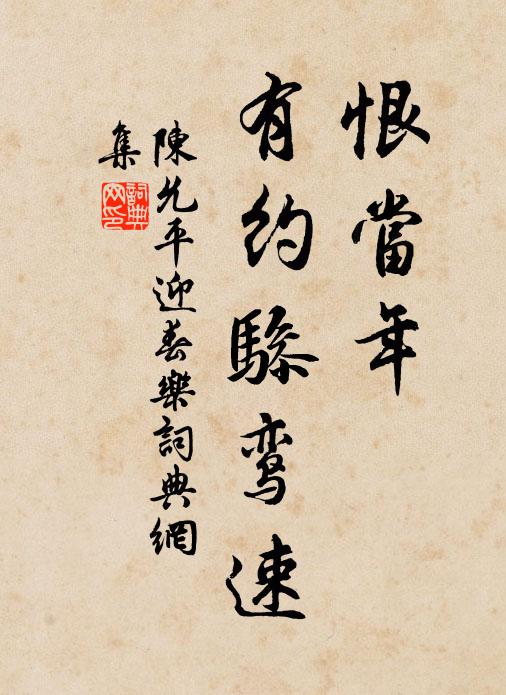 恨當年
有約驂鸾速
陳允平迎春樂詞典網
集
詞典
网印